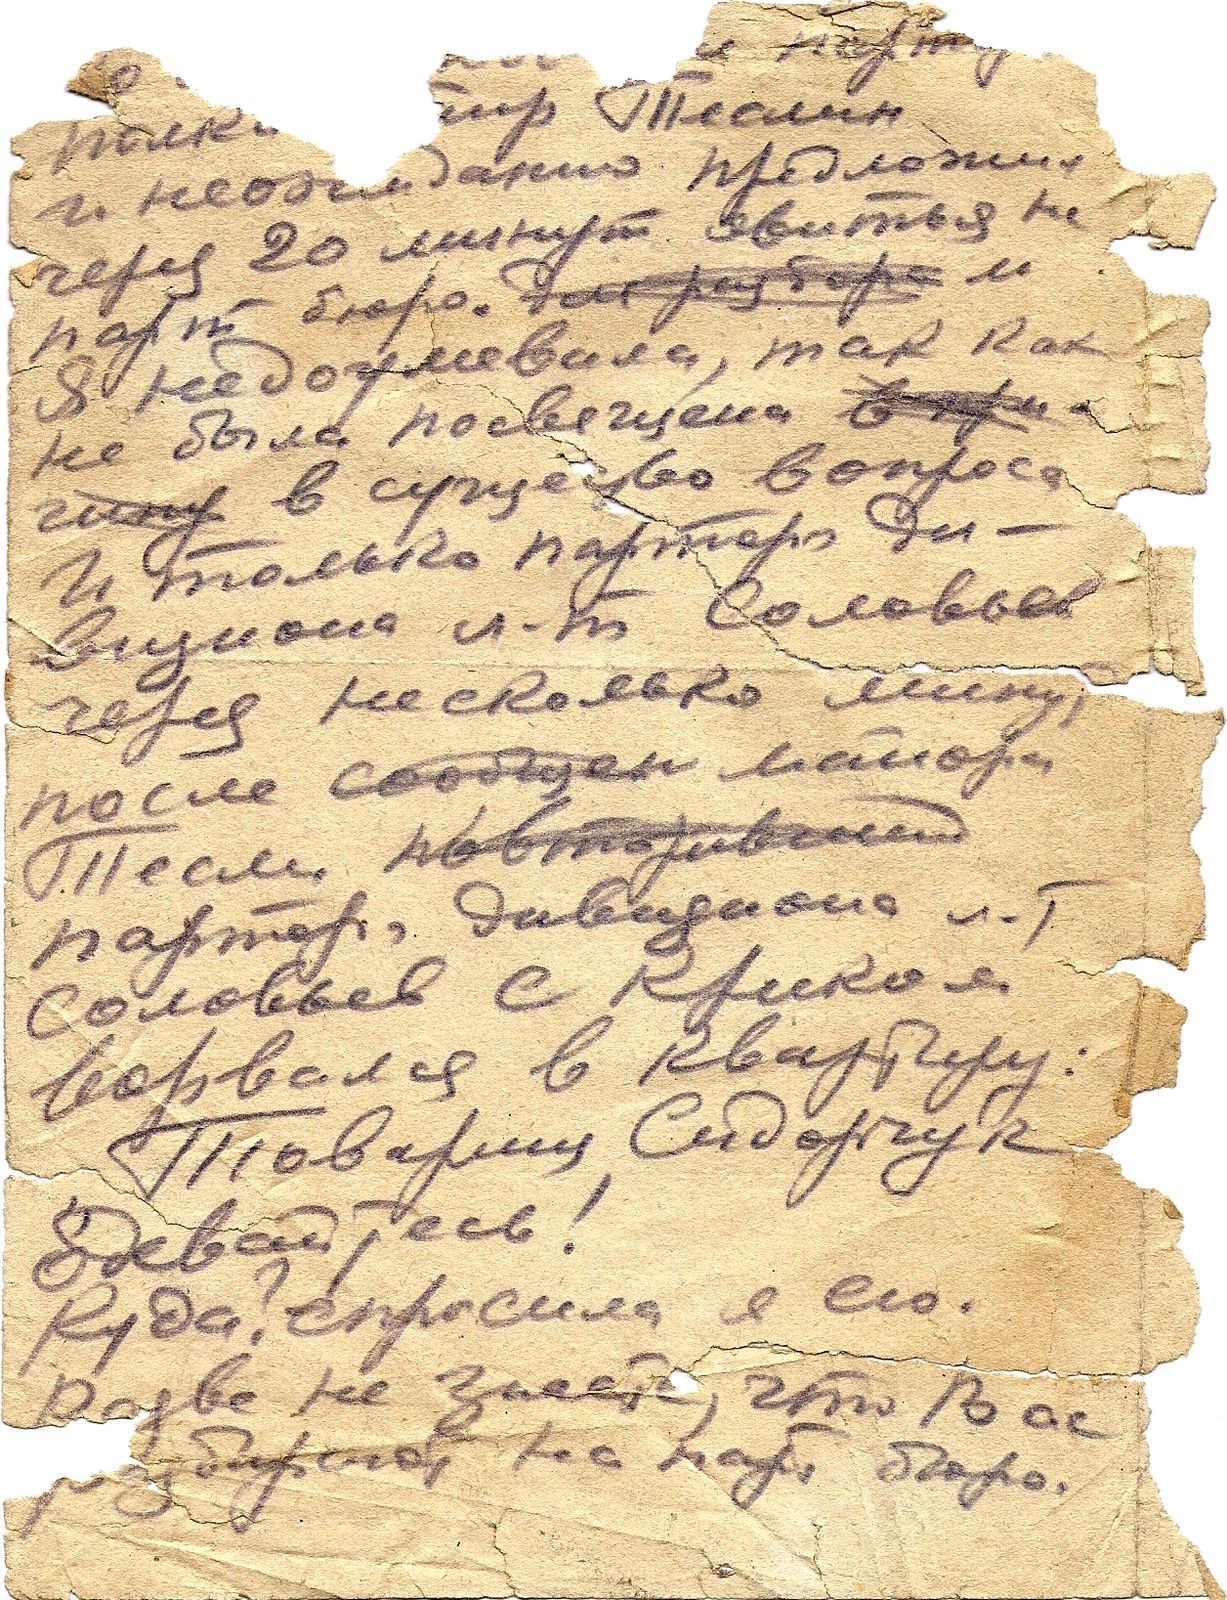 и парт
полк Тесмин
и неожиданно предложил
через 20 минут явиться на
парт бюро. для разбора и
Я недоумевала, так как
не была посвящена в при
чину в существо вопроса
И только парторг ди-
визиона л-т Соловьев
через несколько мину,
после сообщен майора
Тесм. повторивший
парторг, дивизиона л-т
Соловьев с криком
ворвался в квартиру:
Товарищ Сидорчук
Одевайтесь!
Куда? спросила я его.
разве не знаете, что Вас
разбирают на парт бюро.